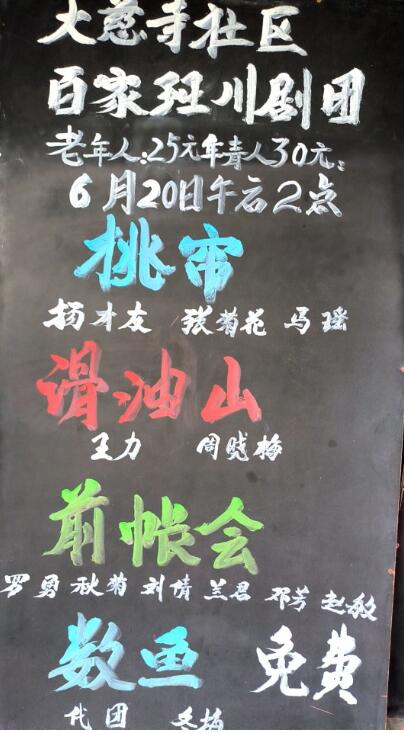 大慈寺社区
百家班川剧团
老年人:25元年青人30元:
6月20日午后2点
桃帘
扬才友 张菊花 马瑶
滑油山
王力 周晓梅
前帐会
罗勇 秋菊 刘倩 兰君 邓芳 赵敏
数鱼 免费
代团